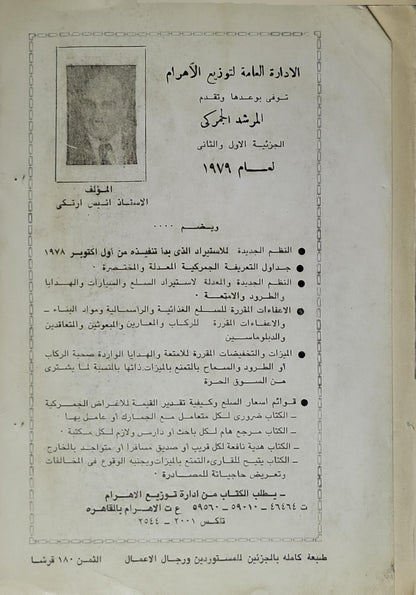 الادارة العامة لتوزيع الأهرام
توفى بوعدها وتقدم
المرشد الجمركى
الجزئية الاول والثانى
لعام ١٩٧٩
المؤلف
الاستاذ انيس ارتكى
ويضم ....
النظم الجديدة للاستيراد الذى بدأ تنفيذه من أول أكتوبر ١٩٧٨
جداول التعريفة الجمركية المعدلة والمختصرة .
النظم الجديدة والمعدلة لاستيراد السلع والسيارات والهدايا
والطرود والامتعة .
الاعفاءات المقررة للسلع الغذائية والراسمالية ومواد البناء -
والاعفاءات المقررة للركاب والمعارين والمبعوثين والمتعاقدين
والدبلوماسين
الميزات والتخفيضات المقررة للامتعة والهدايا الواردة صحبة الركاب
او الطرود والسماح بالتمتع بالميزات ذاتها بالنسبة لما يشترى
من السوق الحرة
قوائم اسعار السلع وكيفية تقدير القيمة للاغراض الجمركية
- الكتاب ضرورى لكل متعامل مع الجمارك او عامل بها .
- الكتاب مرجع هام لكل باحث او دارس ولازم لكل مكتبة .
- الكتاب هدية نافعة لكل قريب او صديق مسافرا او متواجد بالخارج
- الكتاب يتيح للقارىء التمتع بالميزات ويجنبه الوقوع فى المخالفات
وتعريض حاجياته للمصادرة .
- يطلب الكتاب من ادارة توزيع الاهرام
ت ٤٦٤٦٤ - ٥٩٠١٠ - ٥٩٥٦٠ ع ت الاهرام بالقاهره
تلكس ٢٠٠١ - ٢٥٤٤
طبعة كامله بالجزئين للمستوردين ورجال الاعمال الثمن ١٨٠ قرشا